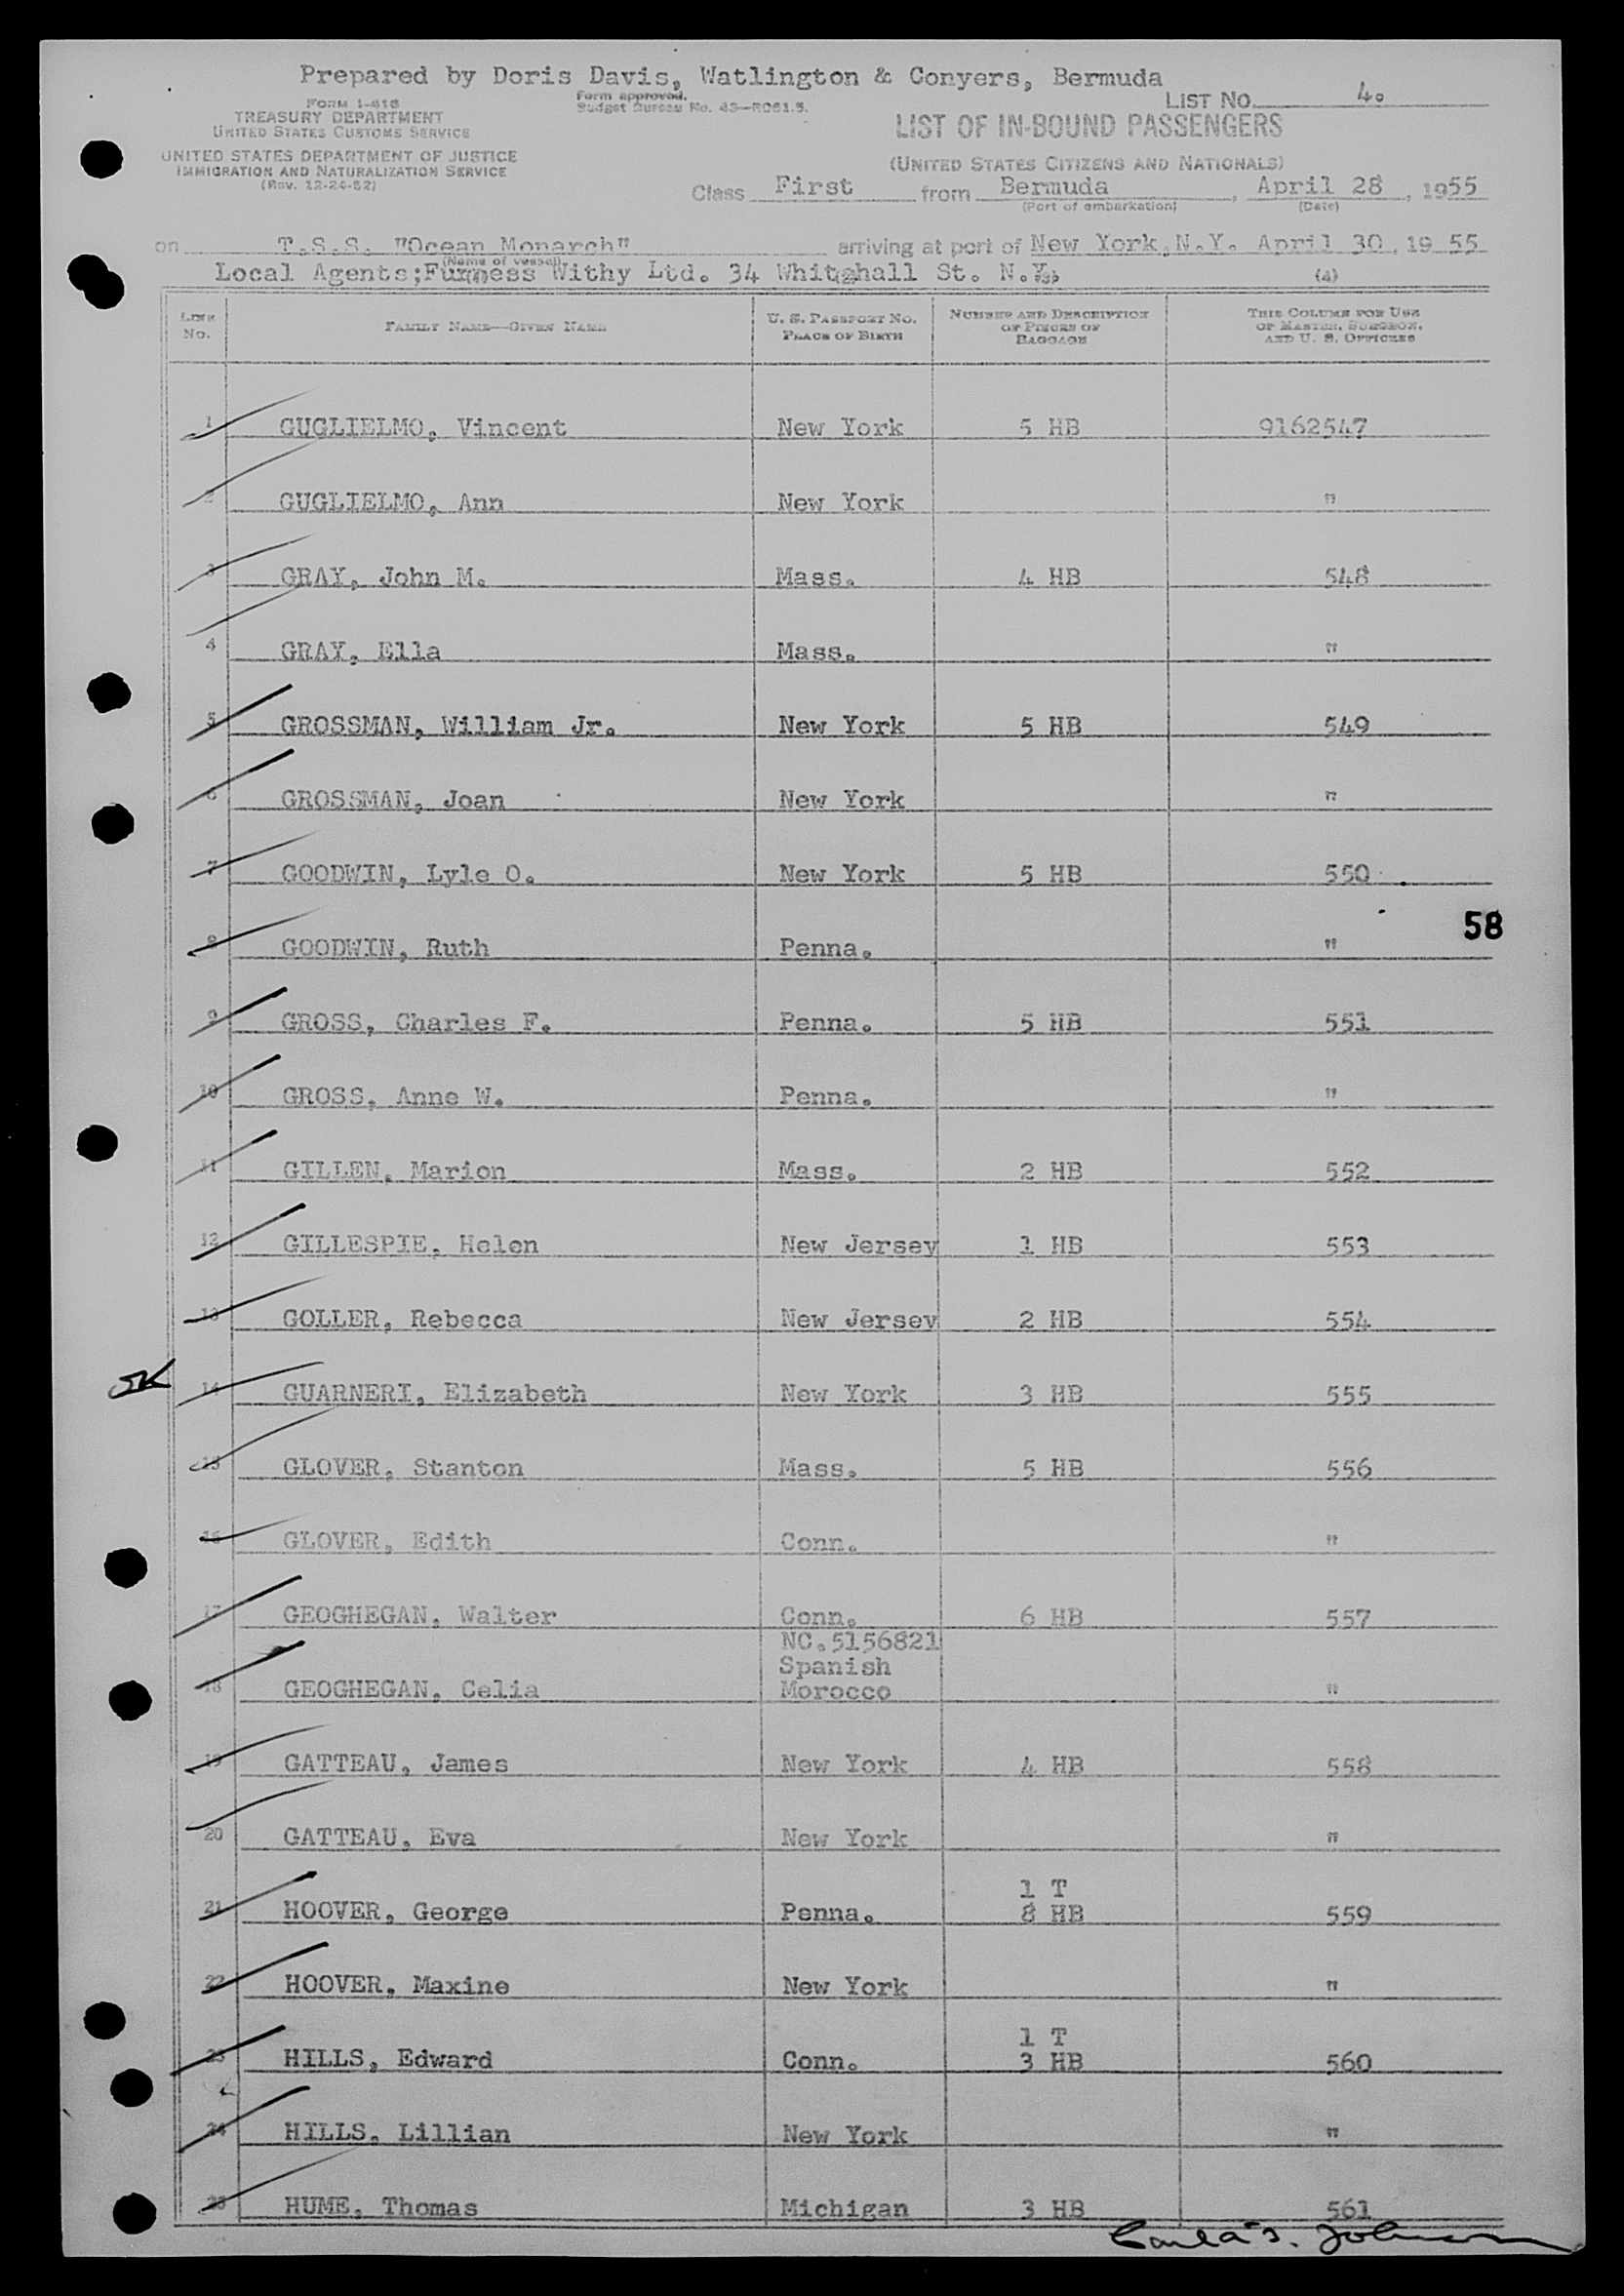 Prepared by Doris Davis, Watlington & Conyers, Bermuda
FORM I-418
TREASURY DEPARTMENT
UNITED STATES CUSTOMS SERVICE
UNITED STATES DEPARTMENT OF JUSTICE
IMMIGRATION AND NATURALIZATION SERVICE
(Rev. 12-24-52)
Form approved.
Budget Bureau No. 43—R061.5.
LIST NO. 4.
LIST OF IN-BOUND PASSENGERS
(UNITED STATES CITIZENS AND NATIONALS)
Class First from Bermuda, April 28, 1955
(Port of embarkation) (Date)
on T.S.S. "Ocean Monarch" arriving at port of New York,N.Y. April 30, 1955
(Name of vessel)
Local Agents;Furness Withy Ltd. 34 Whitehall St. N.Y.
(1) (2) (3) (4)
LINE No. FAMILY NAME—GIVEN NAME U. S. PASSPORT NO. PLACE OF BIRTH NUMBER AND DESCRIPTION OF PIECES OF BAGGAGE THIS COLUMN FOR USE OF MASTER, SURGEON, AND U. S. OFFICERS
1 GUGLIELMO, Vincent New York 5 HB 9162547
2 GUGLIELMO, Ann New York "
3 GRAY, John M. Mass. 4 HB 548
4 GRAY, Ella Mass. "
5 GROSSMAN, William Jr. New York 5 HB 549
6 GROSSMAN, Joan New York "
7 GOODWIN, Lyle O. New York 5 HB 550
58
8 GOODWIN, Ruth Penna. "
9 GROSS, Charles F. Penna. 5 HB 551
10 GROSS, Anne W. Penna. "
11 GILLEN, Marion Mass. 2 HB 552
12 GILLESPIE, Helen New Jersey 1 HB 553
13 GOLLER, Rebecca New Jersey 2 HB 554
14 GUARNERI, Elizabeth New York 3 HB 555
15 GLOVER, Stanton Mass. 5 HB 556
16 GLOVER, Edith Conn. "
17 GEOGHEGAN, Walter Conn. 6 HB 557
NC.5156821
Spanish
18 GEOGHEGAN, Celia Morocco "
19 GATTEAU, James New York 4 HB 558
20 GATTEAU, Eva New York "
1 T
21 HOOVER, George Penna. 8 HB 559
22 HOOVER, Maxine New York "
1 T
23 HILLS, Edward Conn. 3 HB 560
24 HILLS, Lillian New York "
25 HUME, Thomas Michigan 3 HB 561